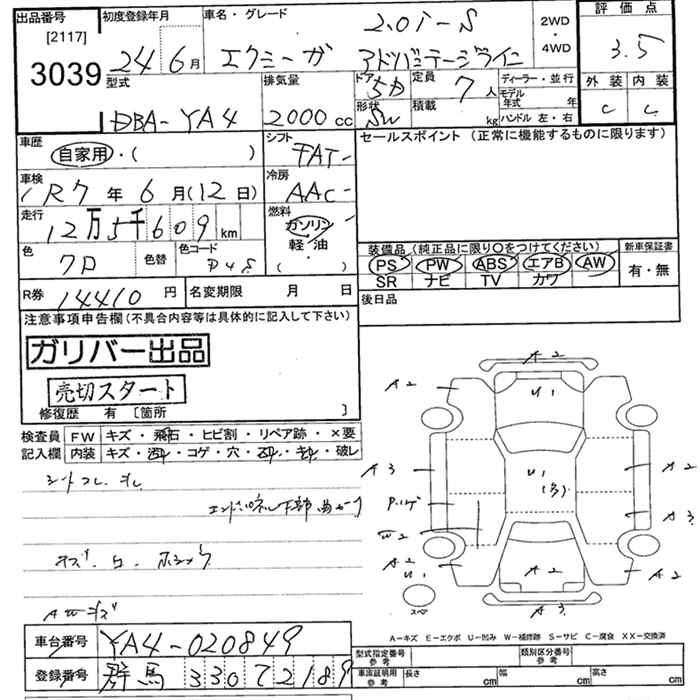 出品番号
[2117]
3039
初度登録年月
24年6月
車名・グレード
2.0i-S
エクシーガ アドバンテージライン
2WD
・
4WD
評価点
3.5
外装 内装
C C
型式
DBA-YA4
排気量
2000cc
ドア
5D
形状
SW
定員
7人
積載
kg
ディーラー・並行
モデル年式 年
ハンドル 左・右
車歴
自家用・( )
シフト
FAT
セールスポイント (正常に機能するものに限ります)
車検
R7年6月(12日)
冷房
AAC
走行
12万5千609km
燃料
ガソリン
軽油
・
( )
色
色替
色コード
装備品 (純正品に限り〇をつけてください)
新車保証書
PS PW ABS エアB AW
SR ナビ TV カワ
有・無
R券 14410円
名変期限 月 日
後日品
注意事項申告欄 (不具合内容等は具体的に記入して下さい)
ガリバー出品
売切スタート
修復歴 有 〔箇所 〕
検査員 FW キズ・飛石・ヒビ割・リペア跡・×要
記入欄 内装 キズ・汚れ・コゲ・穴・スレ・キレ・破レ
エンドパネル下部曲
AWキズ
A2
A2
U1
A3
U1
(多)
A2
A3
W2
A2
U1
A2
A2
スペア
A3
A-キズ E-エクボ U-凹み W-補修跡 S-サビ C-腐食 XX-交換済
車台番号 YA4-020849
登録番号 群馬 330 7 2189
型式指定番号 参考
類別区分番号 参考
車庫証明用 参考 長さ cm 幅 cm 高さ cm